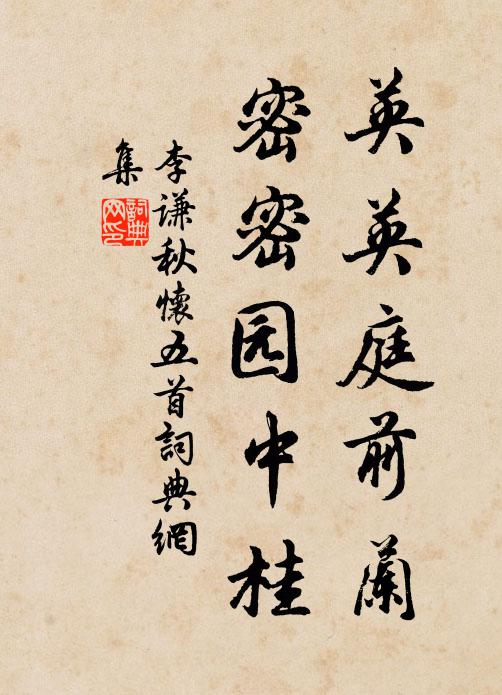 英英庭前蘭
密密园中桂
李谦秋懷五首詞典網
集
詞典
网印